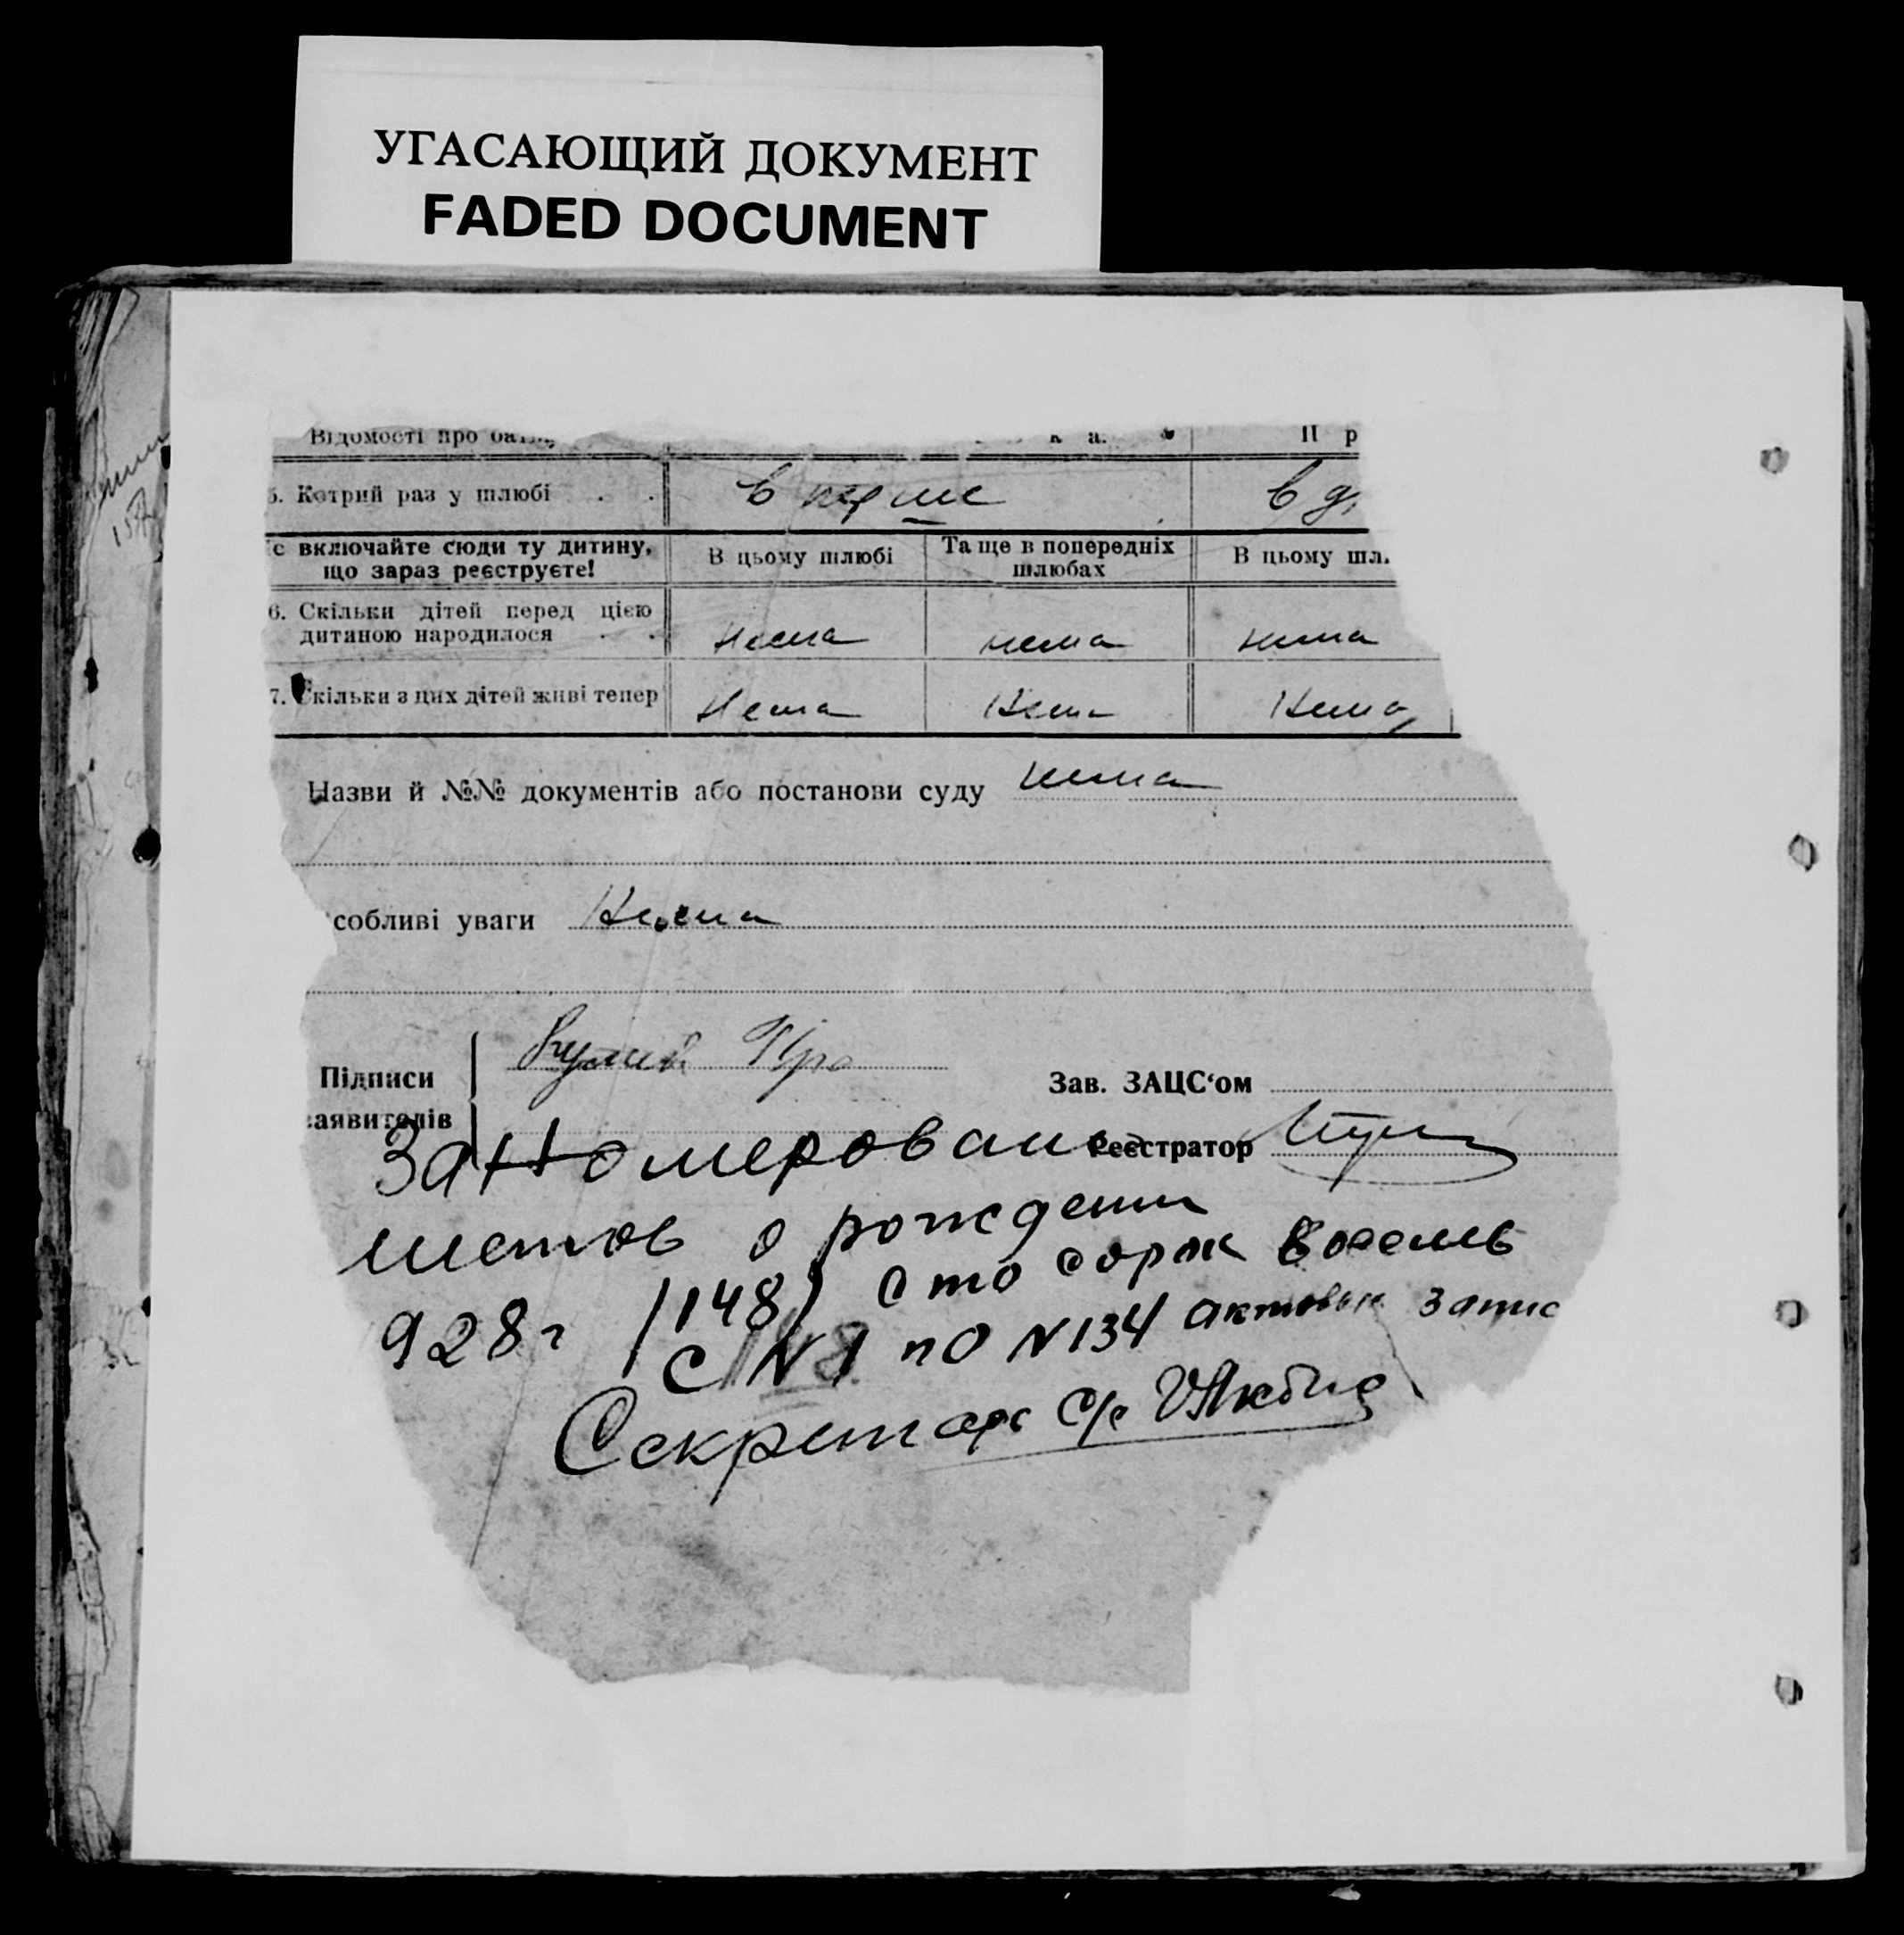 УГАСАЮЩИЙ ДОКУМЕНТ
FADED DOCUMENT
Відомості про
к а.
П р
5. Котрий раз у шлюбі . .
в перше
в д
с включайте сюди ту дитину,
що зараз реєструєте!
В цьому шлюбі
Та ще в попередніх
шлюбах
В цьому шл.
6. Скільки дітей перед цією
дитиною народилося . .
нема
нема
нема
7. Скільки з цих дітей живі тепер
Нема
Нема
Нема
Назви й №№ документів або постанови суду нема
собливі уваги Нема
Підписи
аявителів
Зав. ЗАЦС‘ом
Реєстратор
Занномерован
листов о рождении
928 г (148) сто сорок восемь
с N 1 по N 134 актовых запис
Секретарь с/с